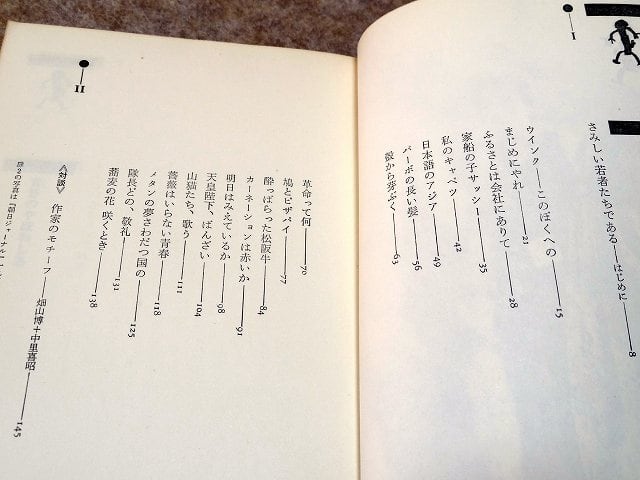 さみしい若者たちである——はじめに——8
I
ウインク——このぼくへの——15
まじめにやれ——21
ふるさとは会社にありて——28
家船の子サッシー——35
私のキャベツ——42
日本語のアジア——49
パーボの長い髪——56
殻から芽ぶく——63
II
革命って何——70
鳩とピザパイ——77
酔っぱらった松阪牛——84
カーネーションは赤いか——91
明日はみえているか——98
天皇陛下、ばんざい——104
山猫たち、歌う——111
薔薇はいらない青春——118
メタンの夢さわだつ国の——125
隊長どの、敬礼——131
蕎麦の花 咲くとき——138
〈対談〉 作家のモチーフ——畑山博＋中里喜昭——145
の写真は「朝日ジャーナル